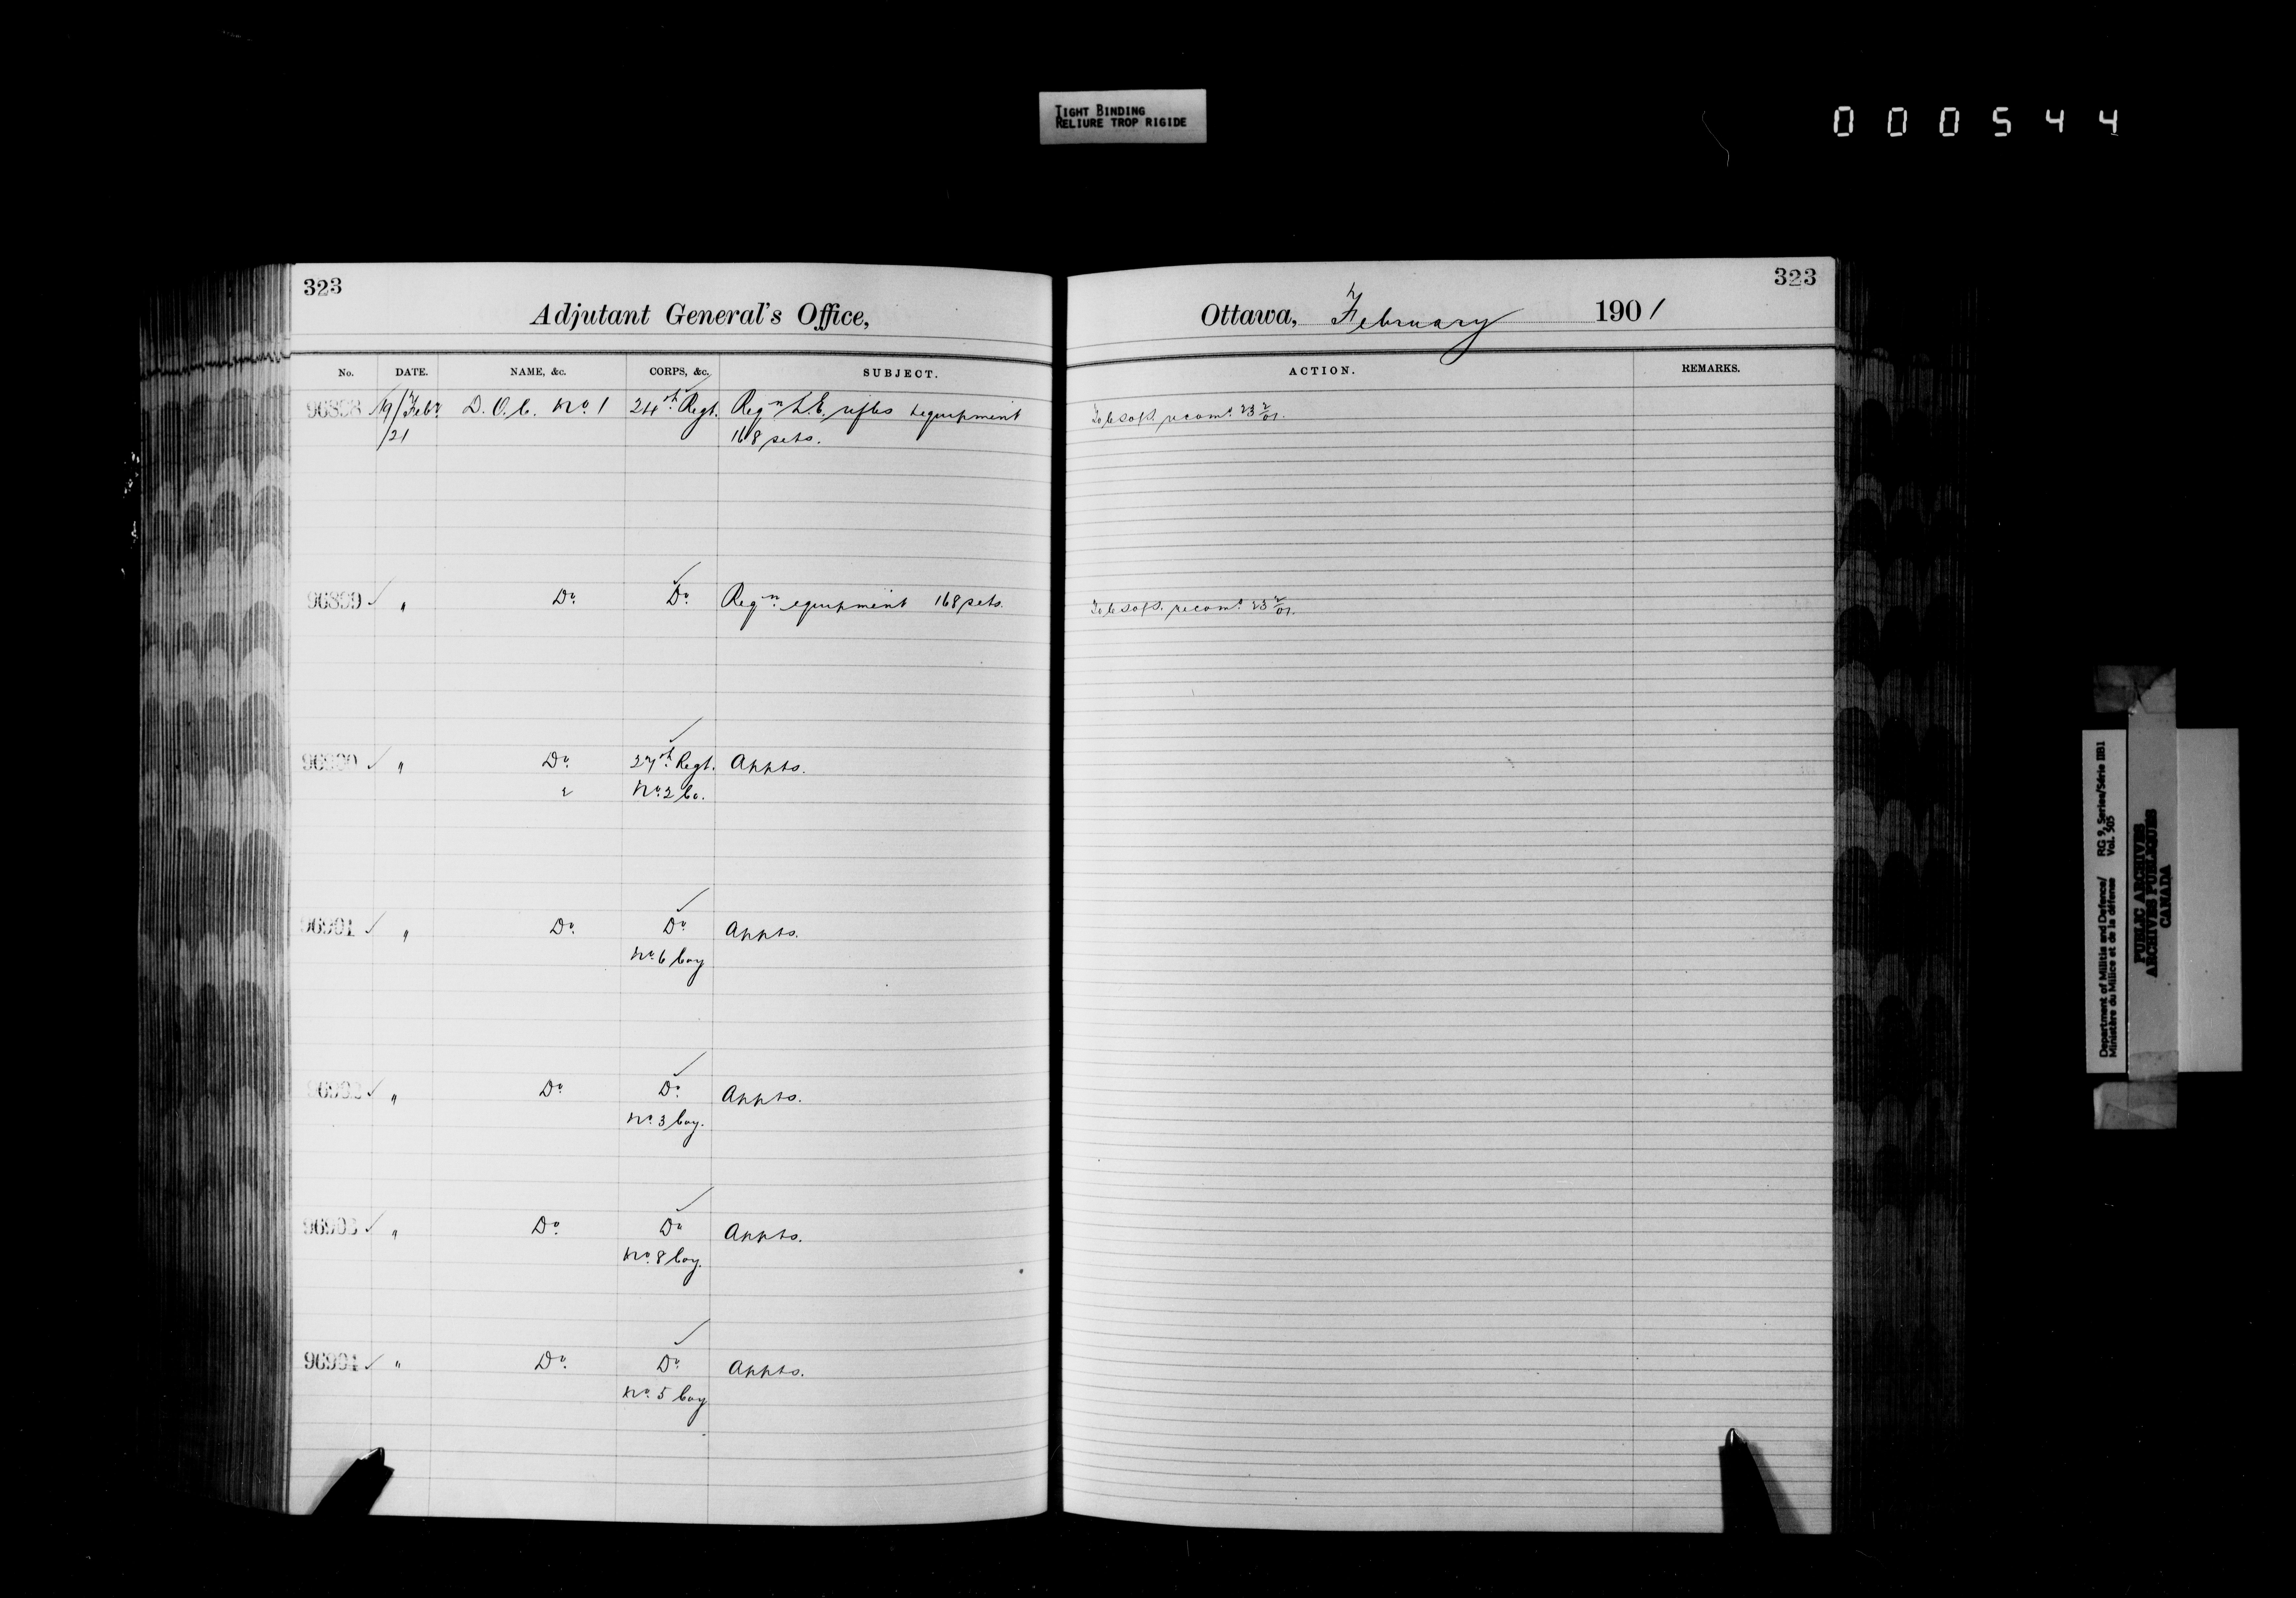 TIGHT BINDING
RELIURE TROP RIGIDE
000544
323
Adjutant General's Office,
No. DATE. NAME, &c. CORPS, &c. SUBJECT.
96898 19/Feby D. O. C. No. 1 24th Regt. Reqn L.E. rifles & equipment
/21 168 sets.
96899 ✓ " Do. Do. Reqn. equipment 168 sets.
96900 ✓ " Do. 27th Regt. Appts.
No. 2 Co.
96901 ✓ " Do. Do. Appts.
No. 6 Coy
96902 ✓ " Do. Do. Appts.
No. 3 Coy.
96903 ✓ " Do. Do. Appts.
No. 8 Coy.
96904 ✓ " Do. Do. Appts.
No. 5 Coy
323
Ottawa, February 1901
ACTION. REMARKS.
recomd. 23/2/01.
recomd. 23/2/01.
Department of Militia and Defence/ RG 9, Series/Série IIB1
Ministère du Milice et de la défense Vol. 505
PUBLIC ARCHIVES
ARCHIVES PUBLIQUES
CANADA